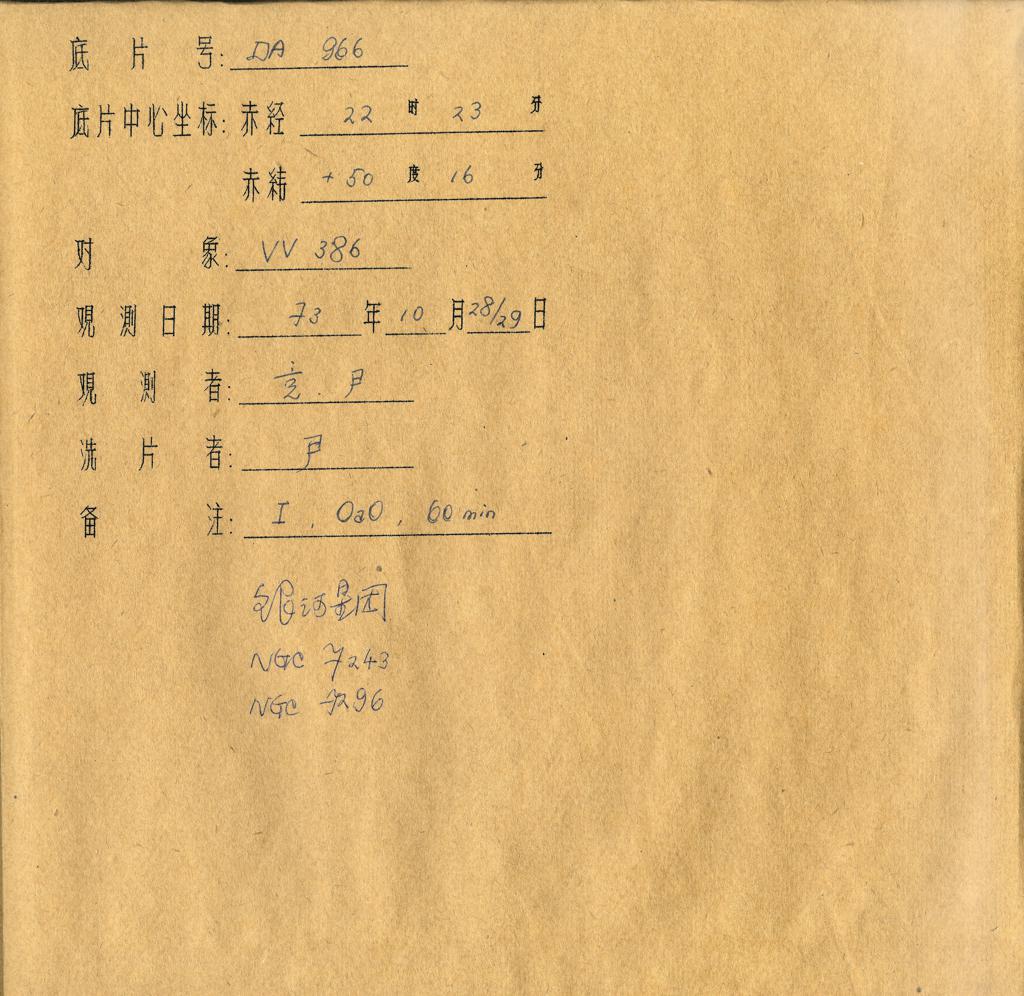 底片号: DA 966
底片中心坐标: 赤经 22 时 23 分
赤纬 +50 度 16 分
对象: VV 386
观测日期: 73 年 10 月 28/29 日
观测者: 尹
洗片者: 尹
备注: I, OaO, 60 min
银河星团
NGC 7243
NGC 7296